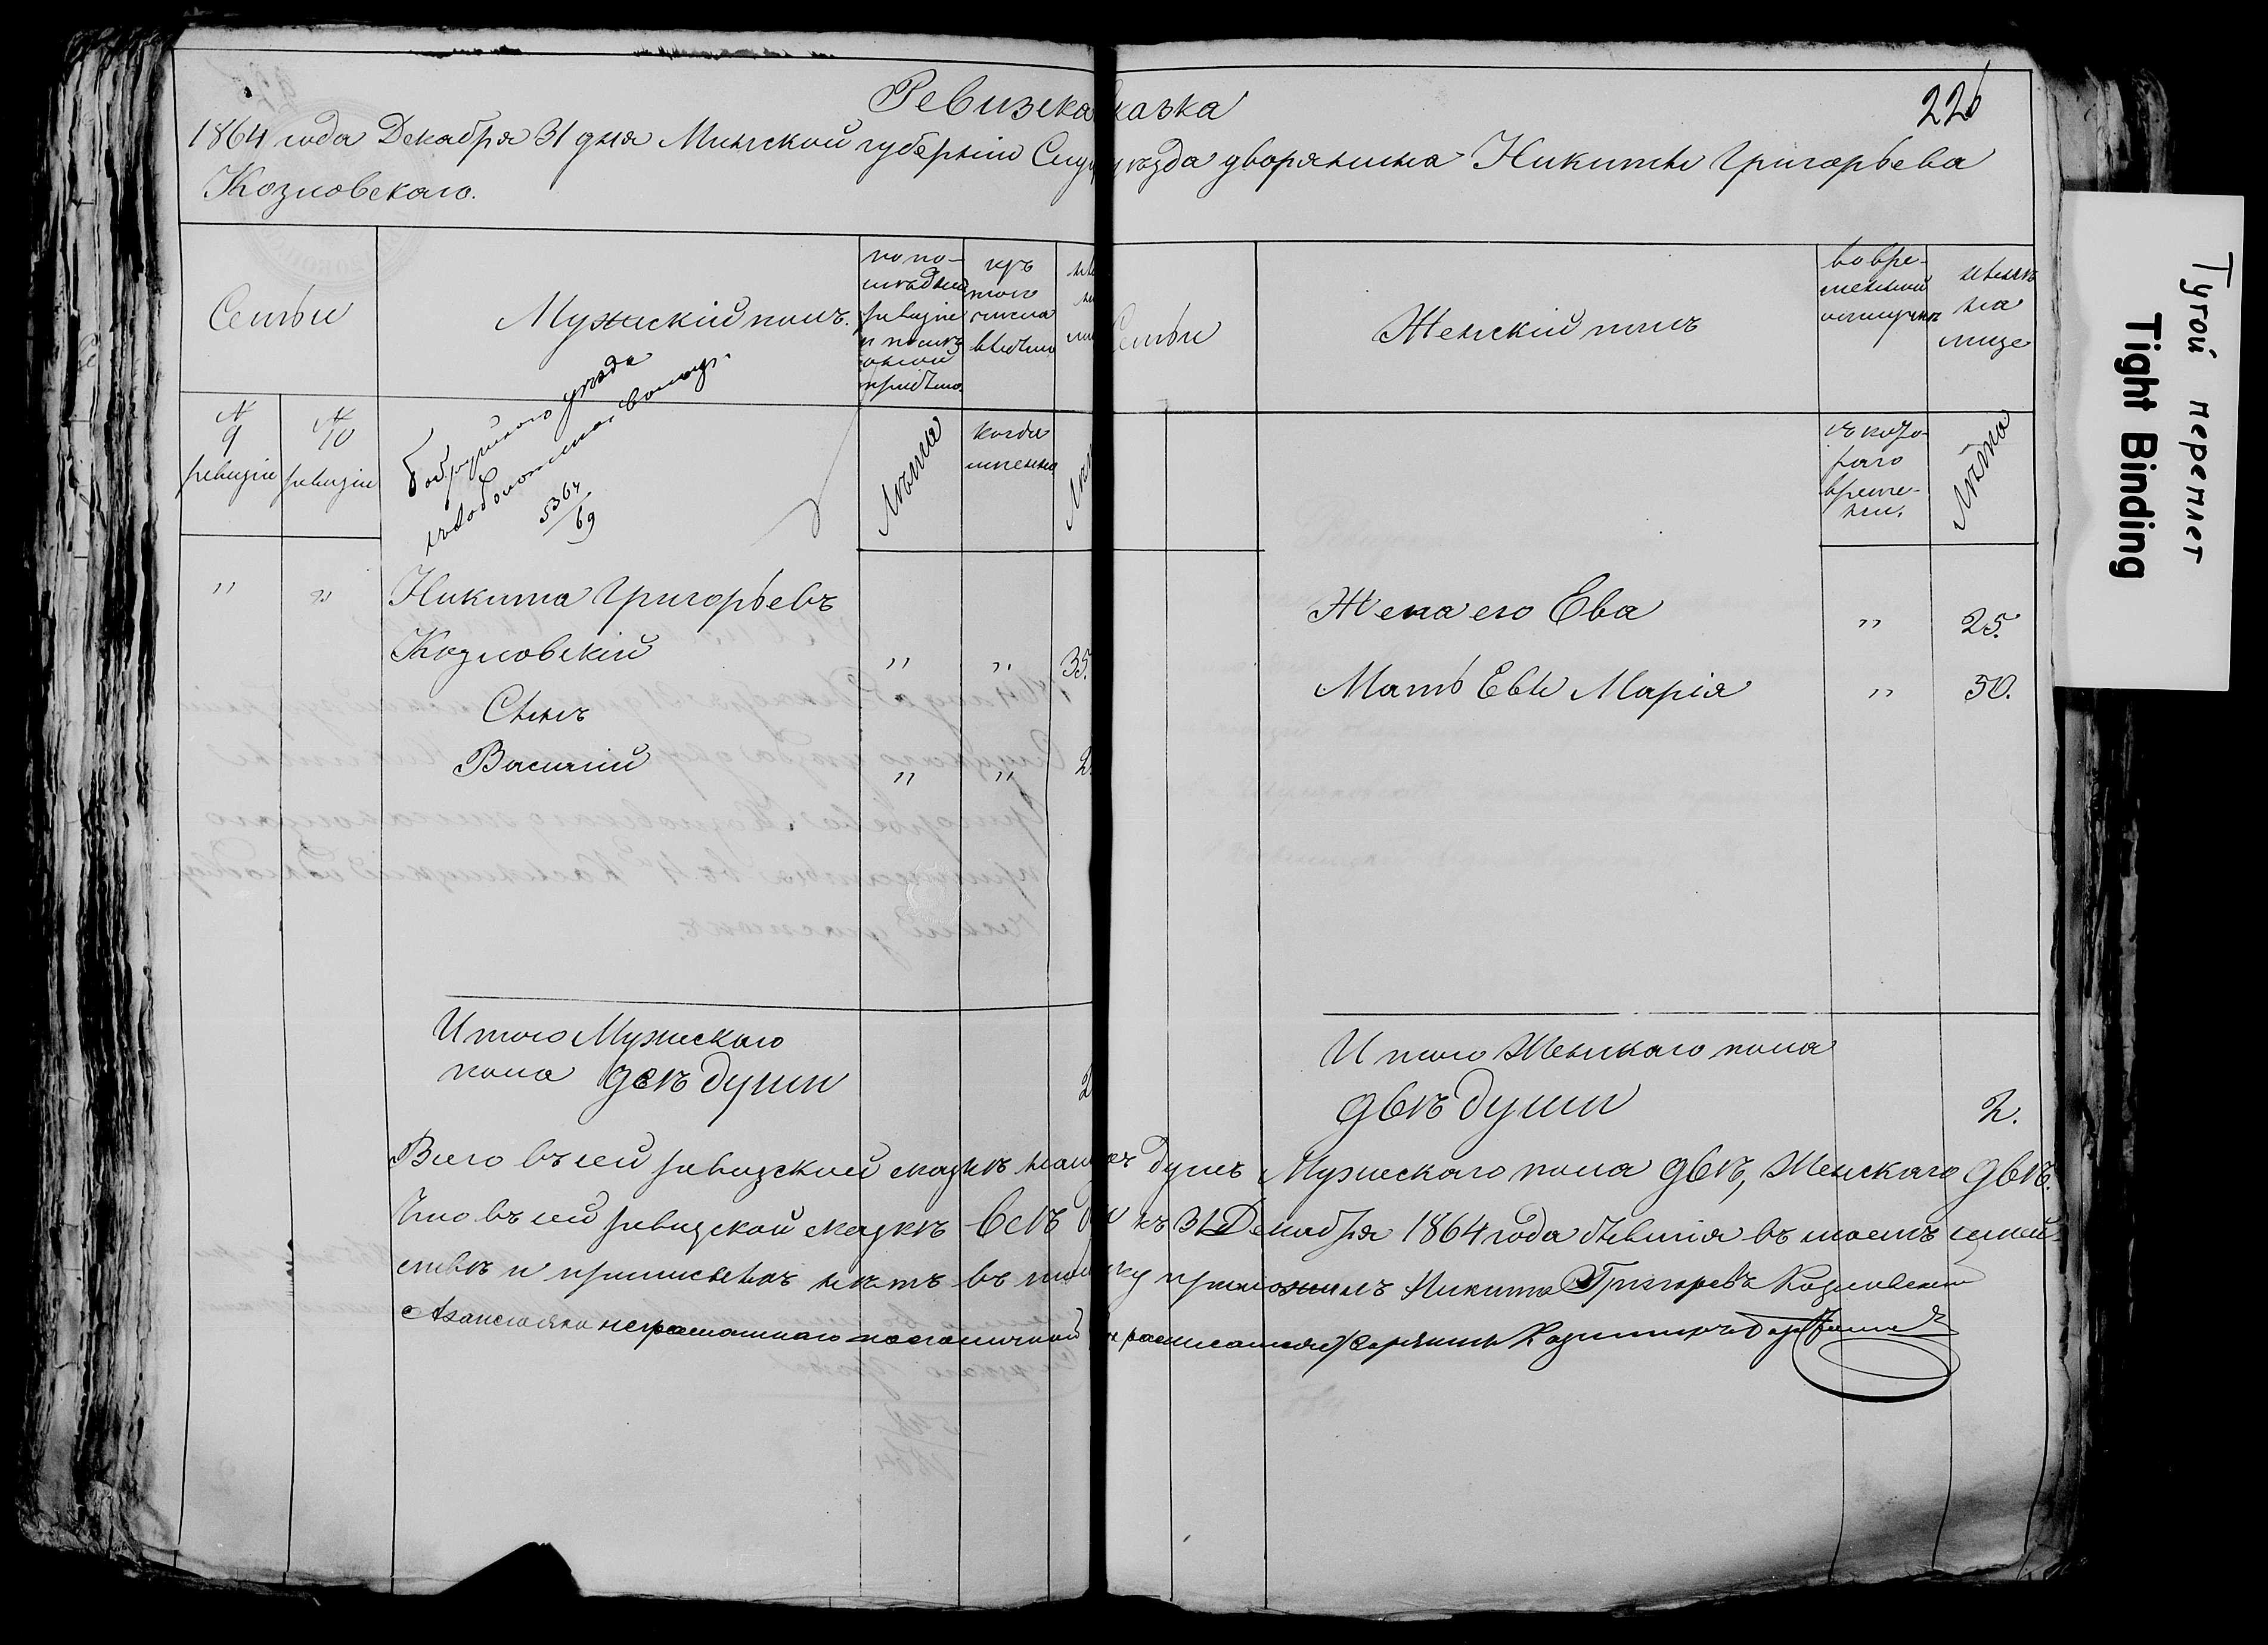 226
Ревизская сказка
1864 года Декабря 31 дня Минской губернiи Слуц уезда дворянина Никиты Григорьева
Козловскаго.
Семьи
Мужскiй полъ.
по по-
следней
ревизiи
и после
оной
прибыло
изъ
того
числа
выбыло
Семьи
Женскiй полъ
во вре-
менной
отлучке
ныне
на
лице
№ 9 ревизiи
№ 10 ревизiи
Бобруйскаго уезда
5364/69
Лета
когда
именно
Лета
съ кото-
раго
време-
ни.
Лета
Никита Григорьевъ
Козловскiй " " 35.
Сынъ
Василiй " " 2.
Жена его Ева " 25.
Мать Евы Марiя " 50.
Итого Мужескаго
пола две души 2
Итого Женскаго пола
две души 2.
Всего въ сей ревизской сказке душъ Мужескаго пола две, Женскаго две.
Что въ сей ревизской сказке все къ 31 Декабря 1864 года бывшiя въ моемъ семей-
стве и прописныхъ нетъ въ приложилъ Никита Григорьевъ Козловскiй
неграмотнаго росписался Дворянинъ Казимиръ
Тугой переплет
Tight Binding